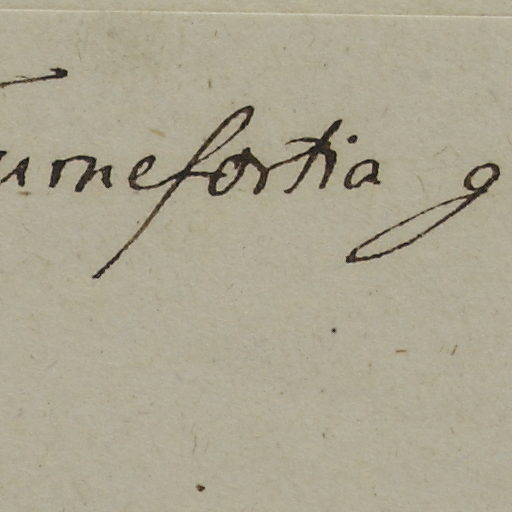 Turnefortia g